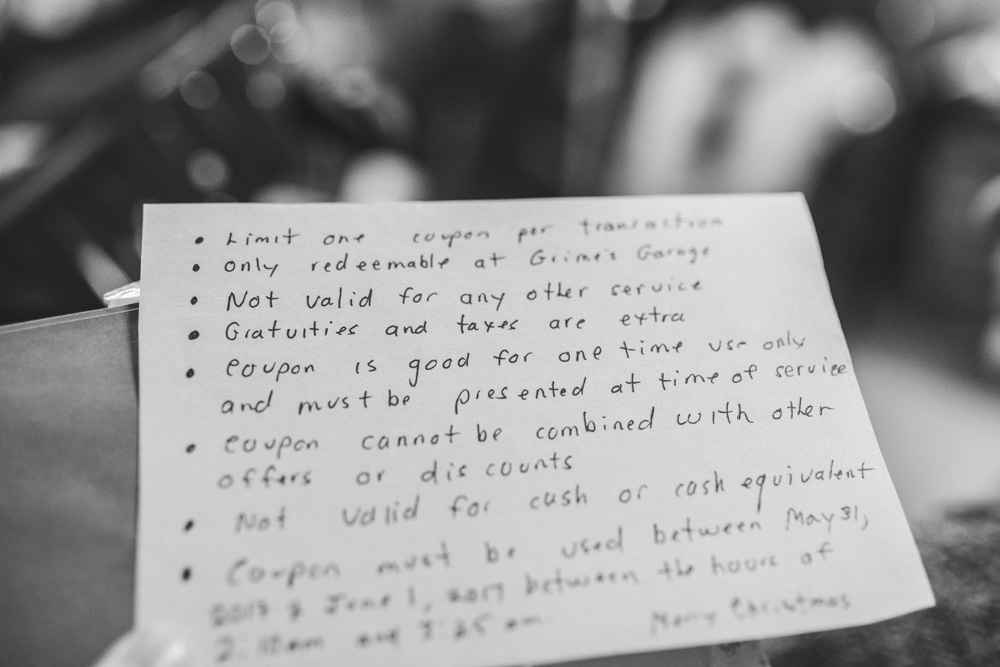 • Limit one coupon per transaction
• only redeemable at Grime's Garage
• Not valid for any other service
• Gratuities and taxes are extra
• coupon is good for one time use only
and must be presented at time of service
• coupon cannot be combined with other
offers or discounts
• Not valid for cash or cash equivalent
• Coupon must be used between May 31,
2017 & June 1, 2017 between the hours of
am and am.
Merry Christmas